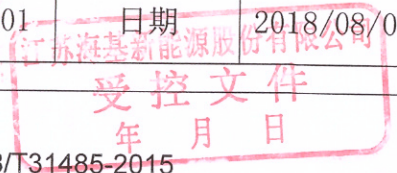 01 日期 2018/08/0
江苏海基新能源股份有限公司
受控文件
年 月 日
/T31485-2015